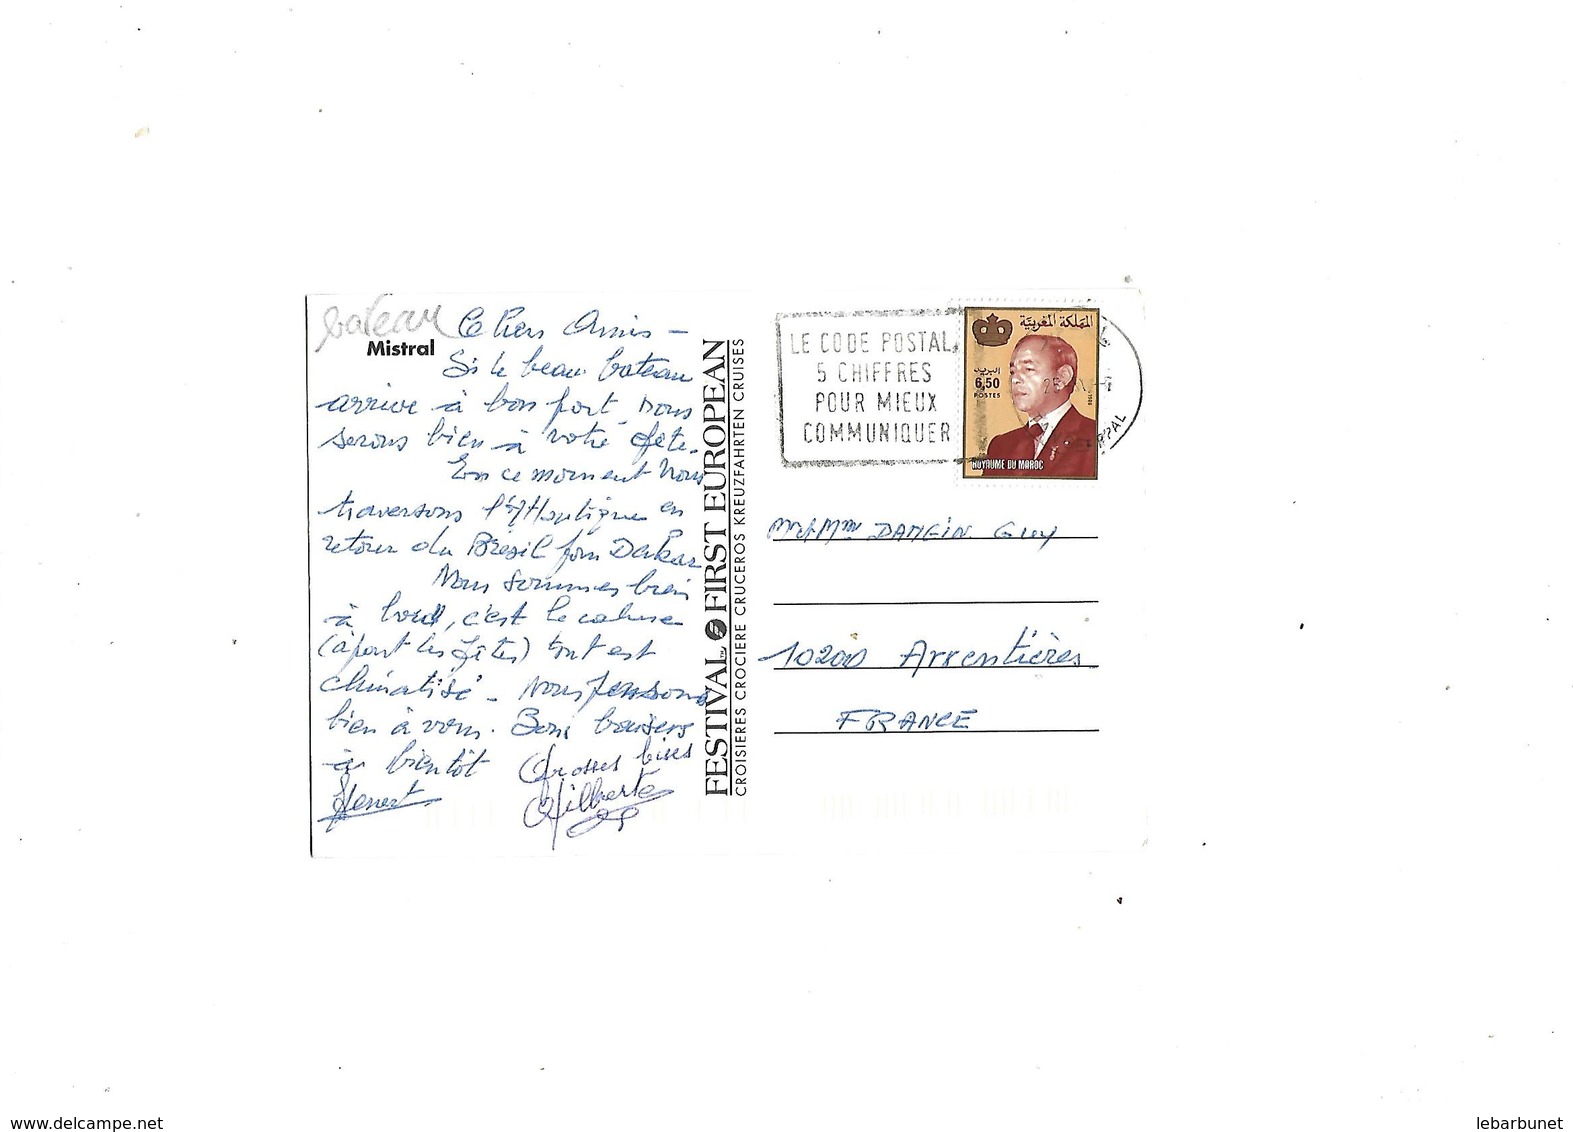 bateau
Mistral
Chers Amis -
Si le beau bateau
arrive à bon port, nous
serons bien à votre fête.
En ce moment nous
traversons l'Atlantique en
retour du Brésil pour Dakar
Nous sommes bien
à bord, c'est le calme
(à part les fêtes) tout est
climatisé - Nous pensons
bien à vous. Bons baisers
à bientôt Grosses bises
Gilberte
FESTIVAL FIRST EUROPEAN
CROISIERES CROCIERE CRUCEROS KREUZFAHRTEN CRUISES
LE CODE POSTAL
5 CHIFFRES
POUR MIEUX
COMMUNIQUER
المملكة المغربية
البريد
6,50
POSTES
1988
ROYAUME DU MAROC
Mr et Mme DAMGIN Guy
10200 Arrentières
FRANCE
www.delcampe.net
lebarbunet